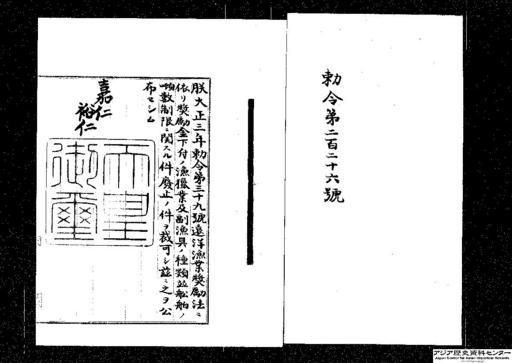 勅令第二百二十六號
朕大正三年勅令第三十九號遠洋漁業奬勵法ニ
依リ奬勵金下付ノ漁獵業及副漁具ノ種類竝船舶ノ
噸數制限ニ關スル件廢止ノ件ヲ裁可シ茲ニ之ヲ公
布セシム
嘉仁
裕仁
天皇
御璽
アジア歴史資料センター
Japan Center for Asian Historical Records